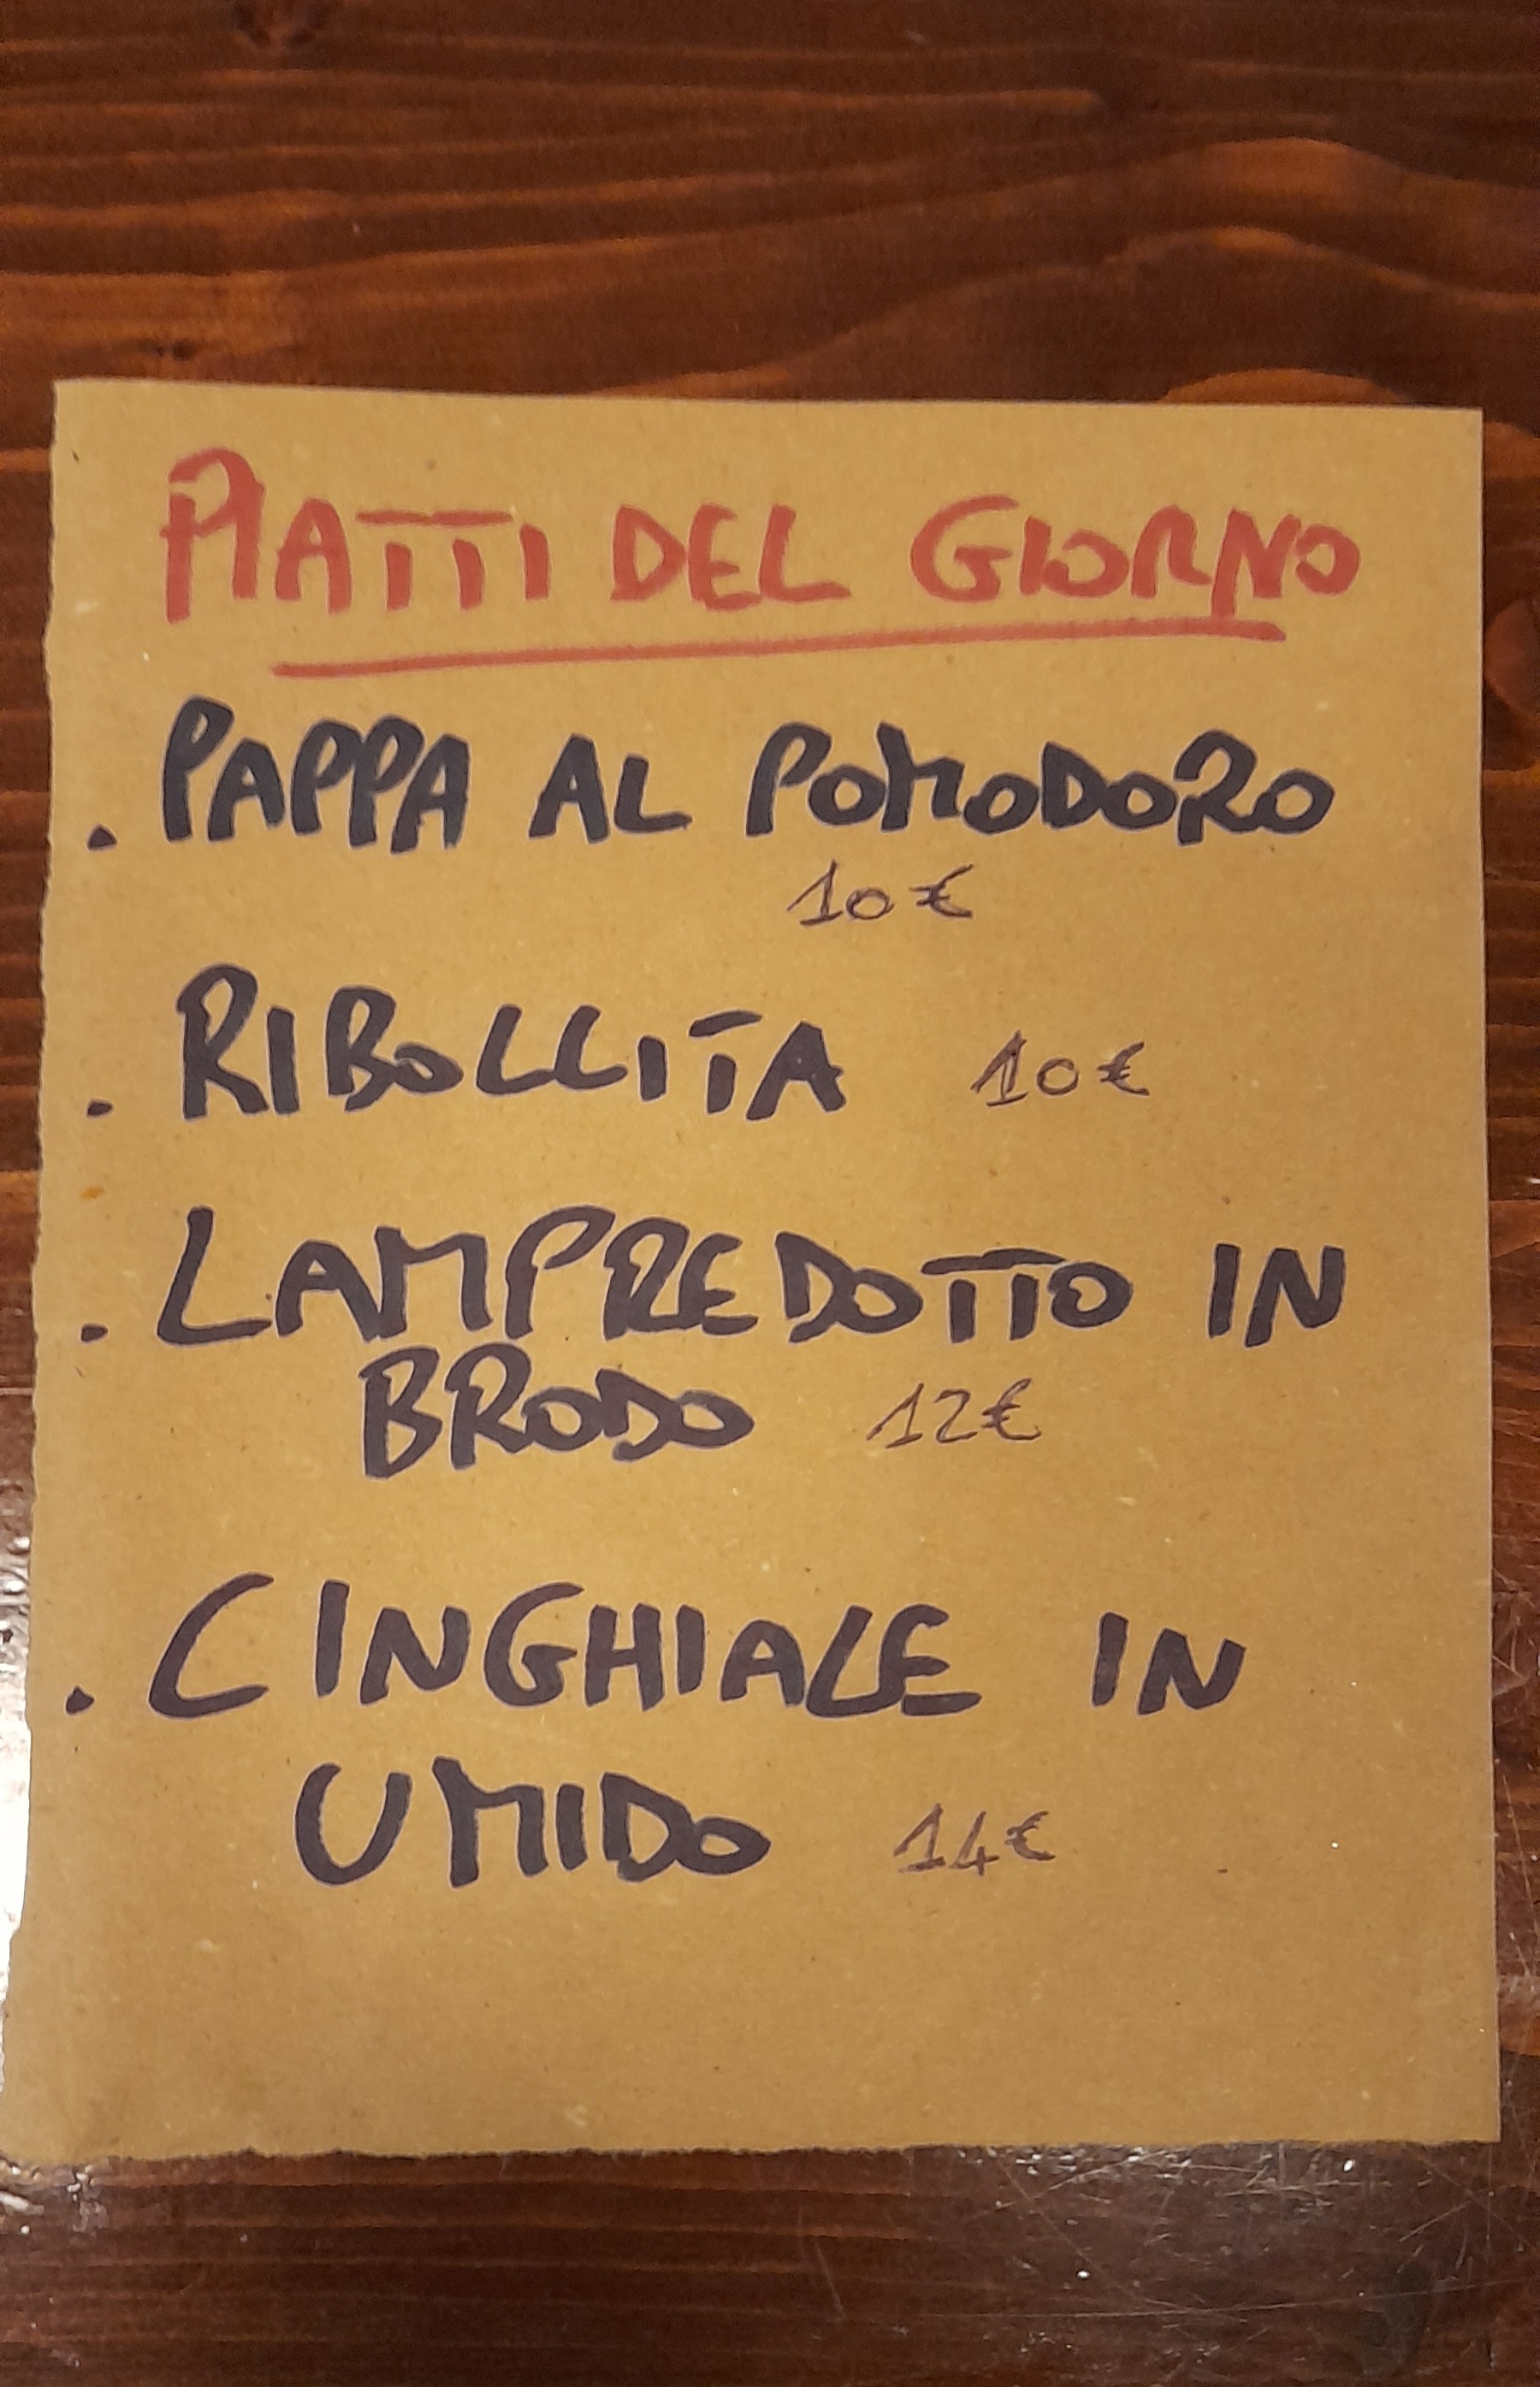 PIATTI DEL GIORNO
. PAPPA AL POMODORO
10€
. RIBOLLITA 10€
. LAMPREDOTTO IN
BRODO 12€
. CINGHIALE IN
UMIDO 14€